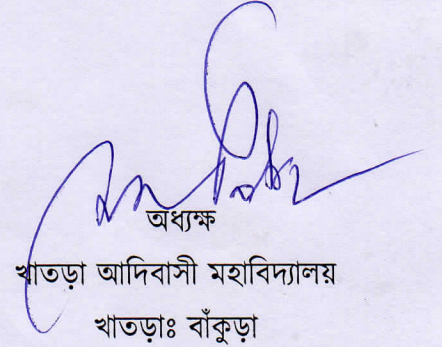 অধ্যক্ষ
খাতড়া আদিবাসী মহাবিদ্যালয়
খাতড়াঃ বাঁকুড়া